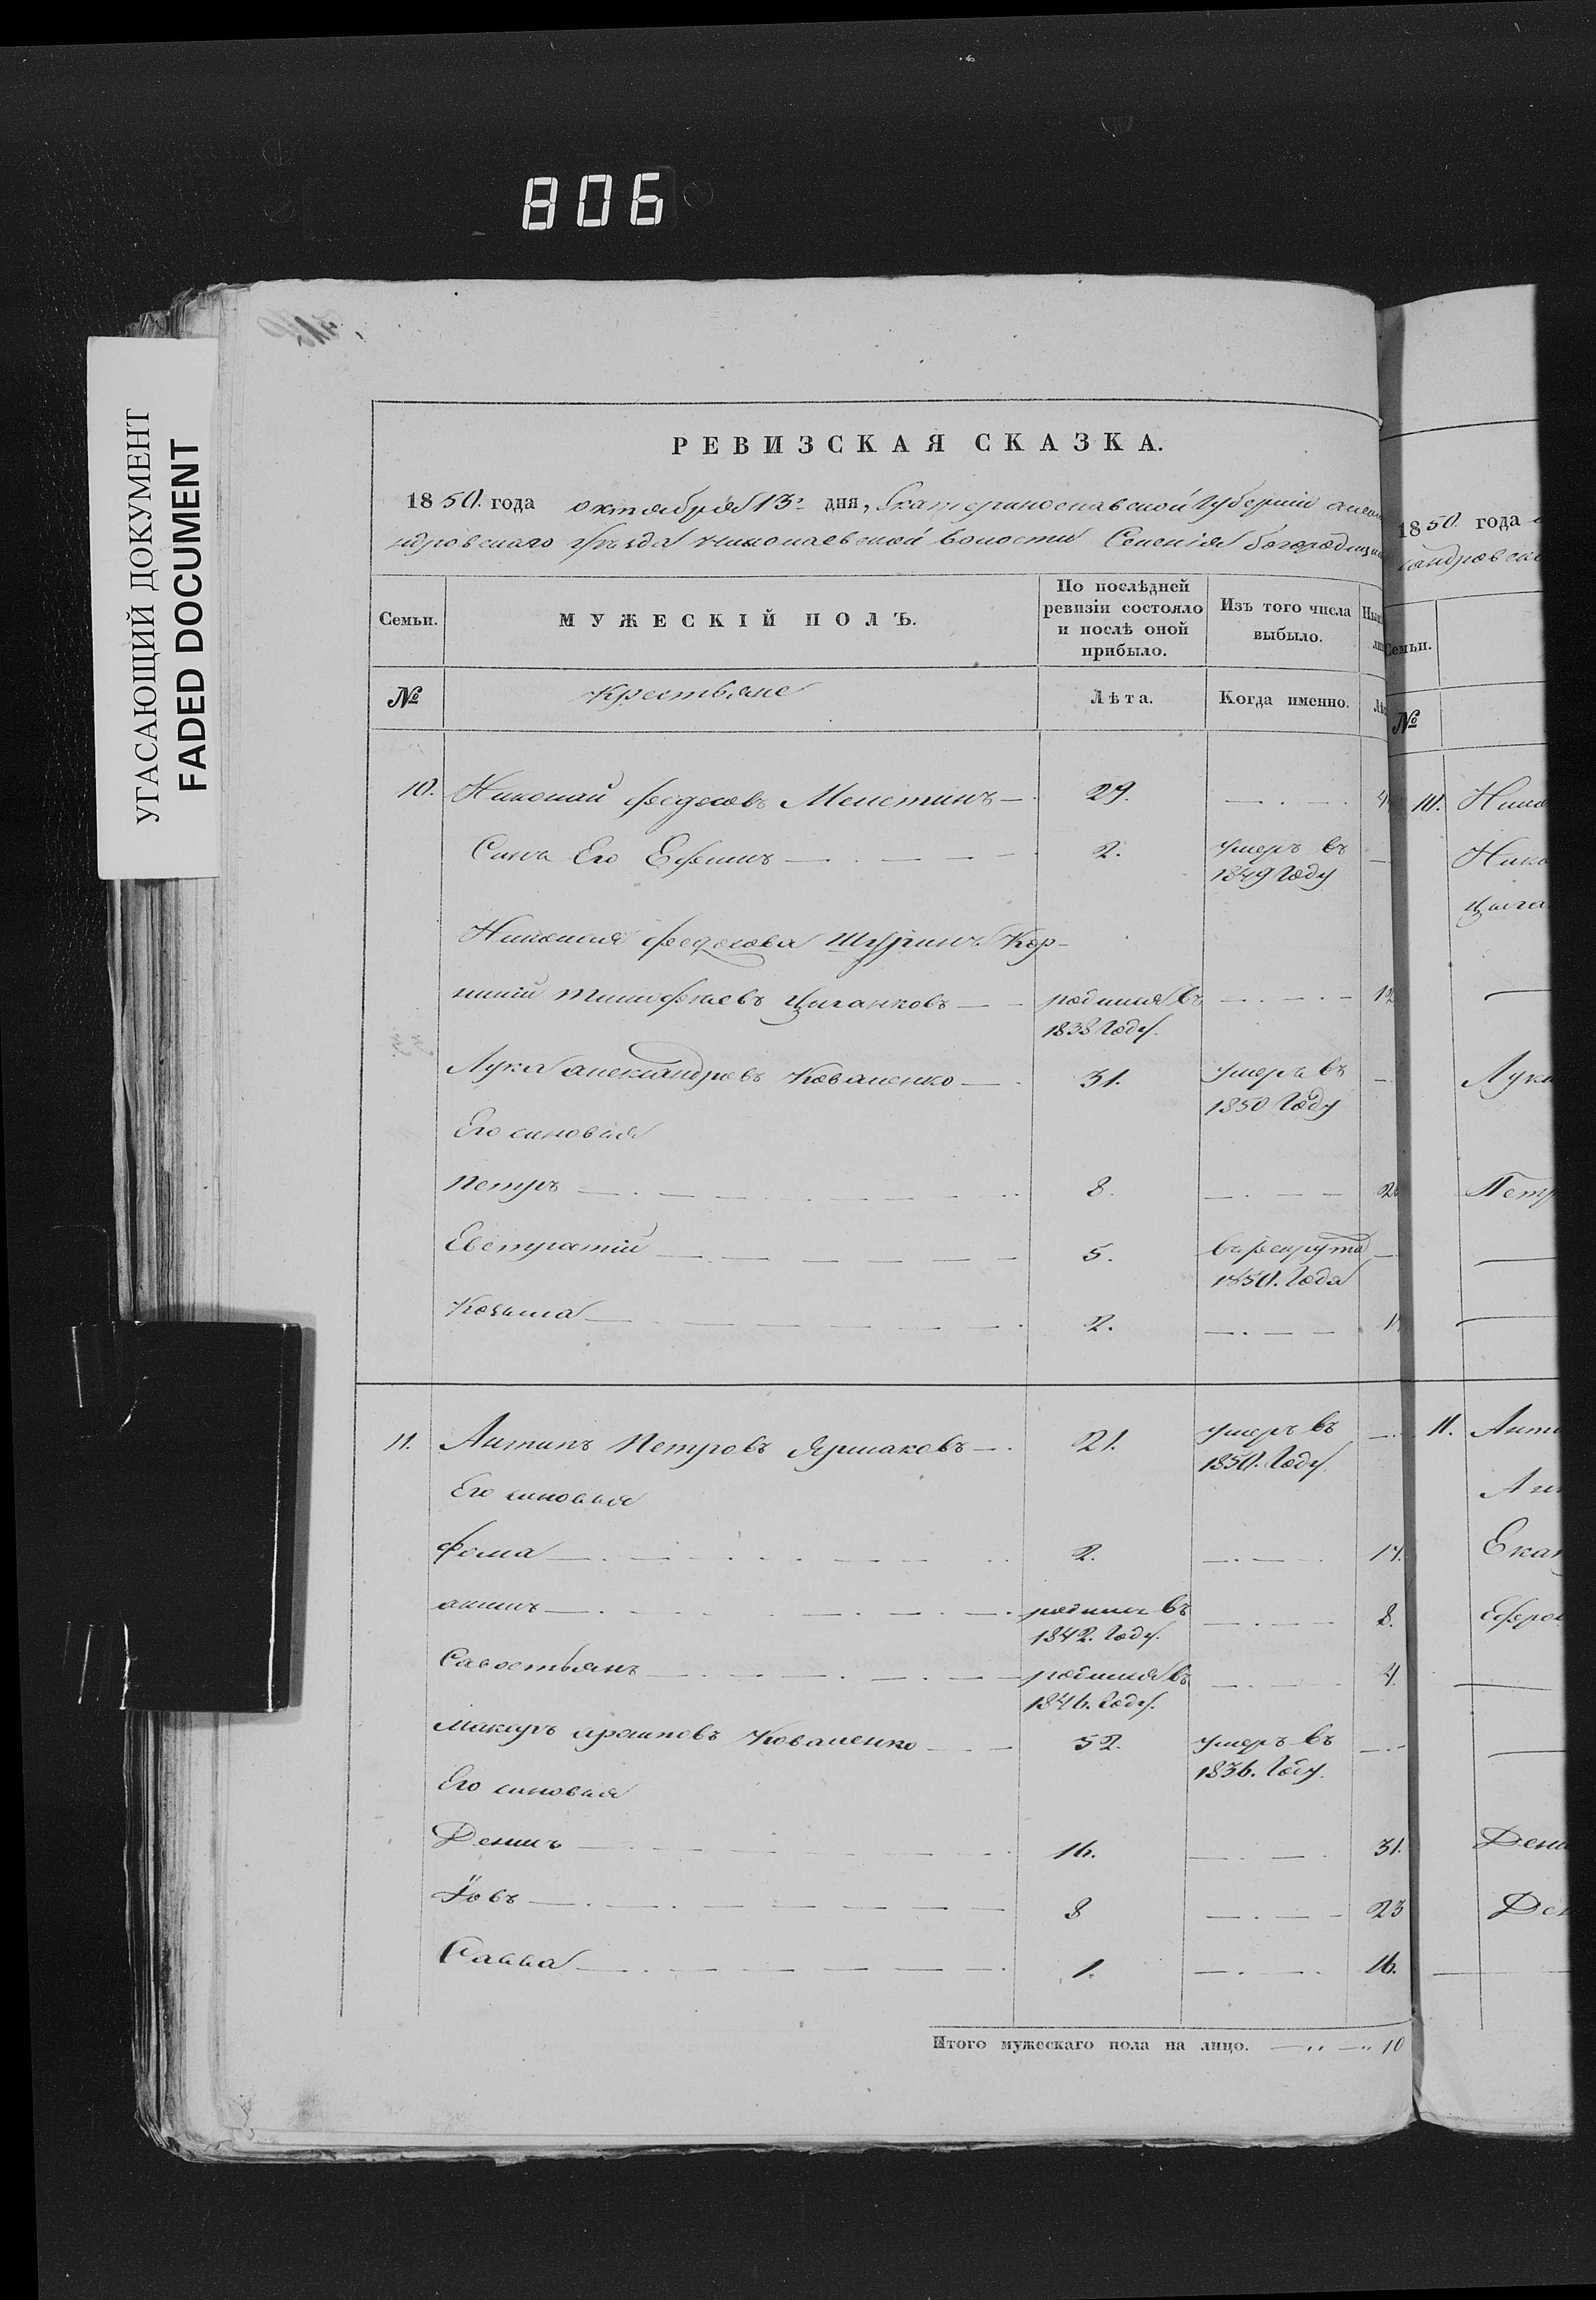 806
УГАСАЮЩИЙ ДОКУМЕНТ
FADED DOCUMENT
РЕВИЗСКАЯ СКАЗКА.
1850. года октября 13. дня, Екатеринославской Губернии Алекса
ндровскаго уѣзда Николаевской волости Селенія Богородицк
Семьи.
МУЖЕСКІЙ ПОЛЪ.
По послѣдней ревизіи состояло и послѣ оной прибыло.
Изъ того числа выбыло.
№ Крестьяне Лѣта. Когда именно.
10. Николай Федосовъ 29.
Сынъ Его Ефимъ 2. умеръ въ
1849 Году
Николая Федосова Шуринъ Кор-
нилій Тимофеевъ Цыганковъ родился въ 12
1838 Году.
Лука Александровъ Коваленко 31. умеръ въ
1850 Году
Его сыновья
Петръ 8.
Евстратій 5. въ рекруты
1850. Года
Козьма 2.
11. Антипъ Петровъ Ярмаковъ 21. умеръ въ
1850. Году.
Его сыновья
Фома 2. 17.
Акимъ родился въ 8.
1842. Году.
Савостьянъ родился въ 4.
1846. Году.
Макаръ Коваленко 52. умеръ въ
1836. Году.
Его сыновья
Денисъ 16. 31.
Іовъ 8 23
Савва 1. 16.
Итого мужескаго пола на лицо. 10
1850 года
сандровска
Семьи.
№
10. Нико
Нико
Цыга
Лук
Петр
11. Анти
Екат
Дени
Ден